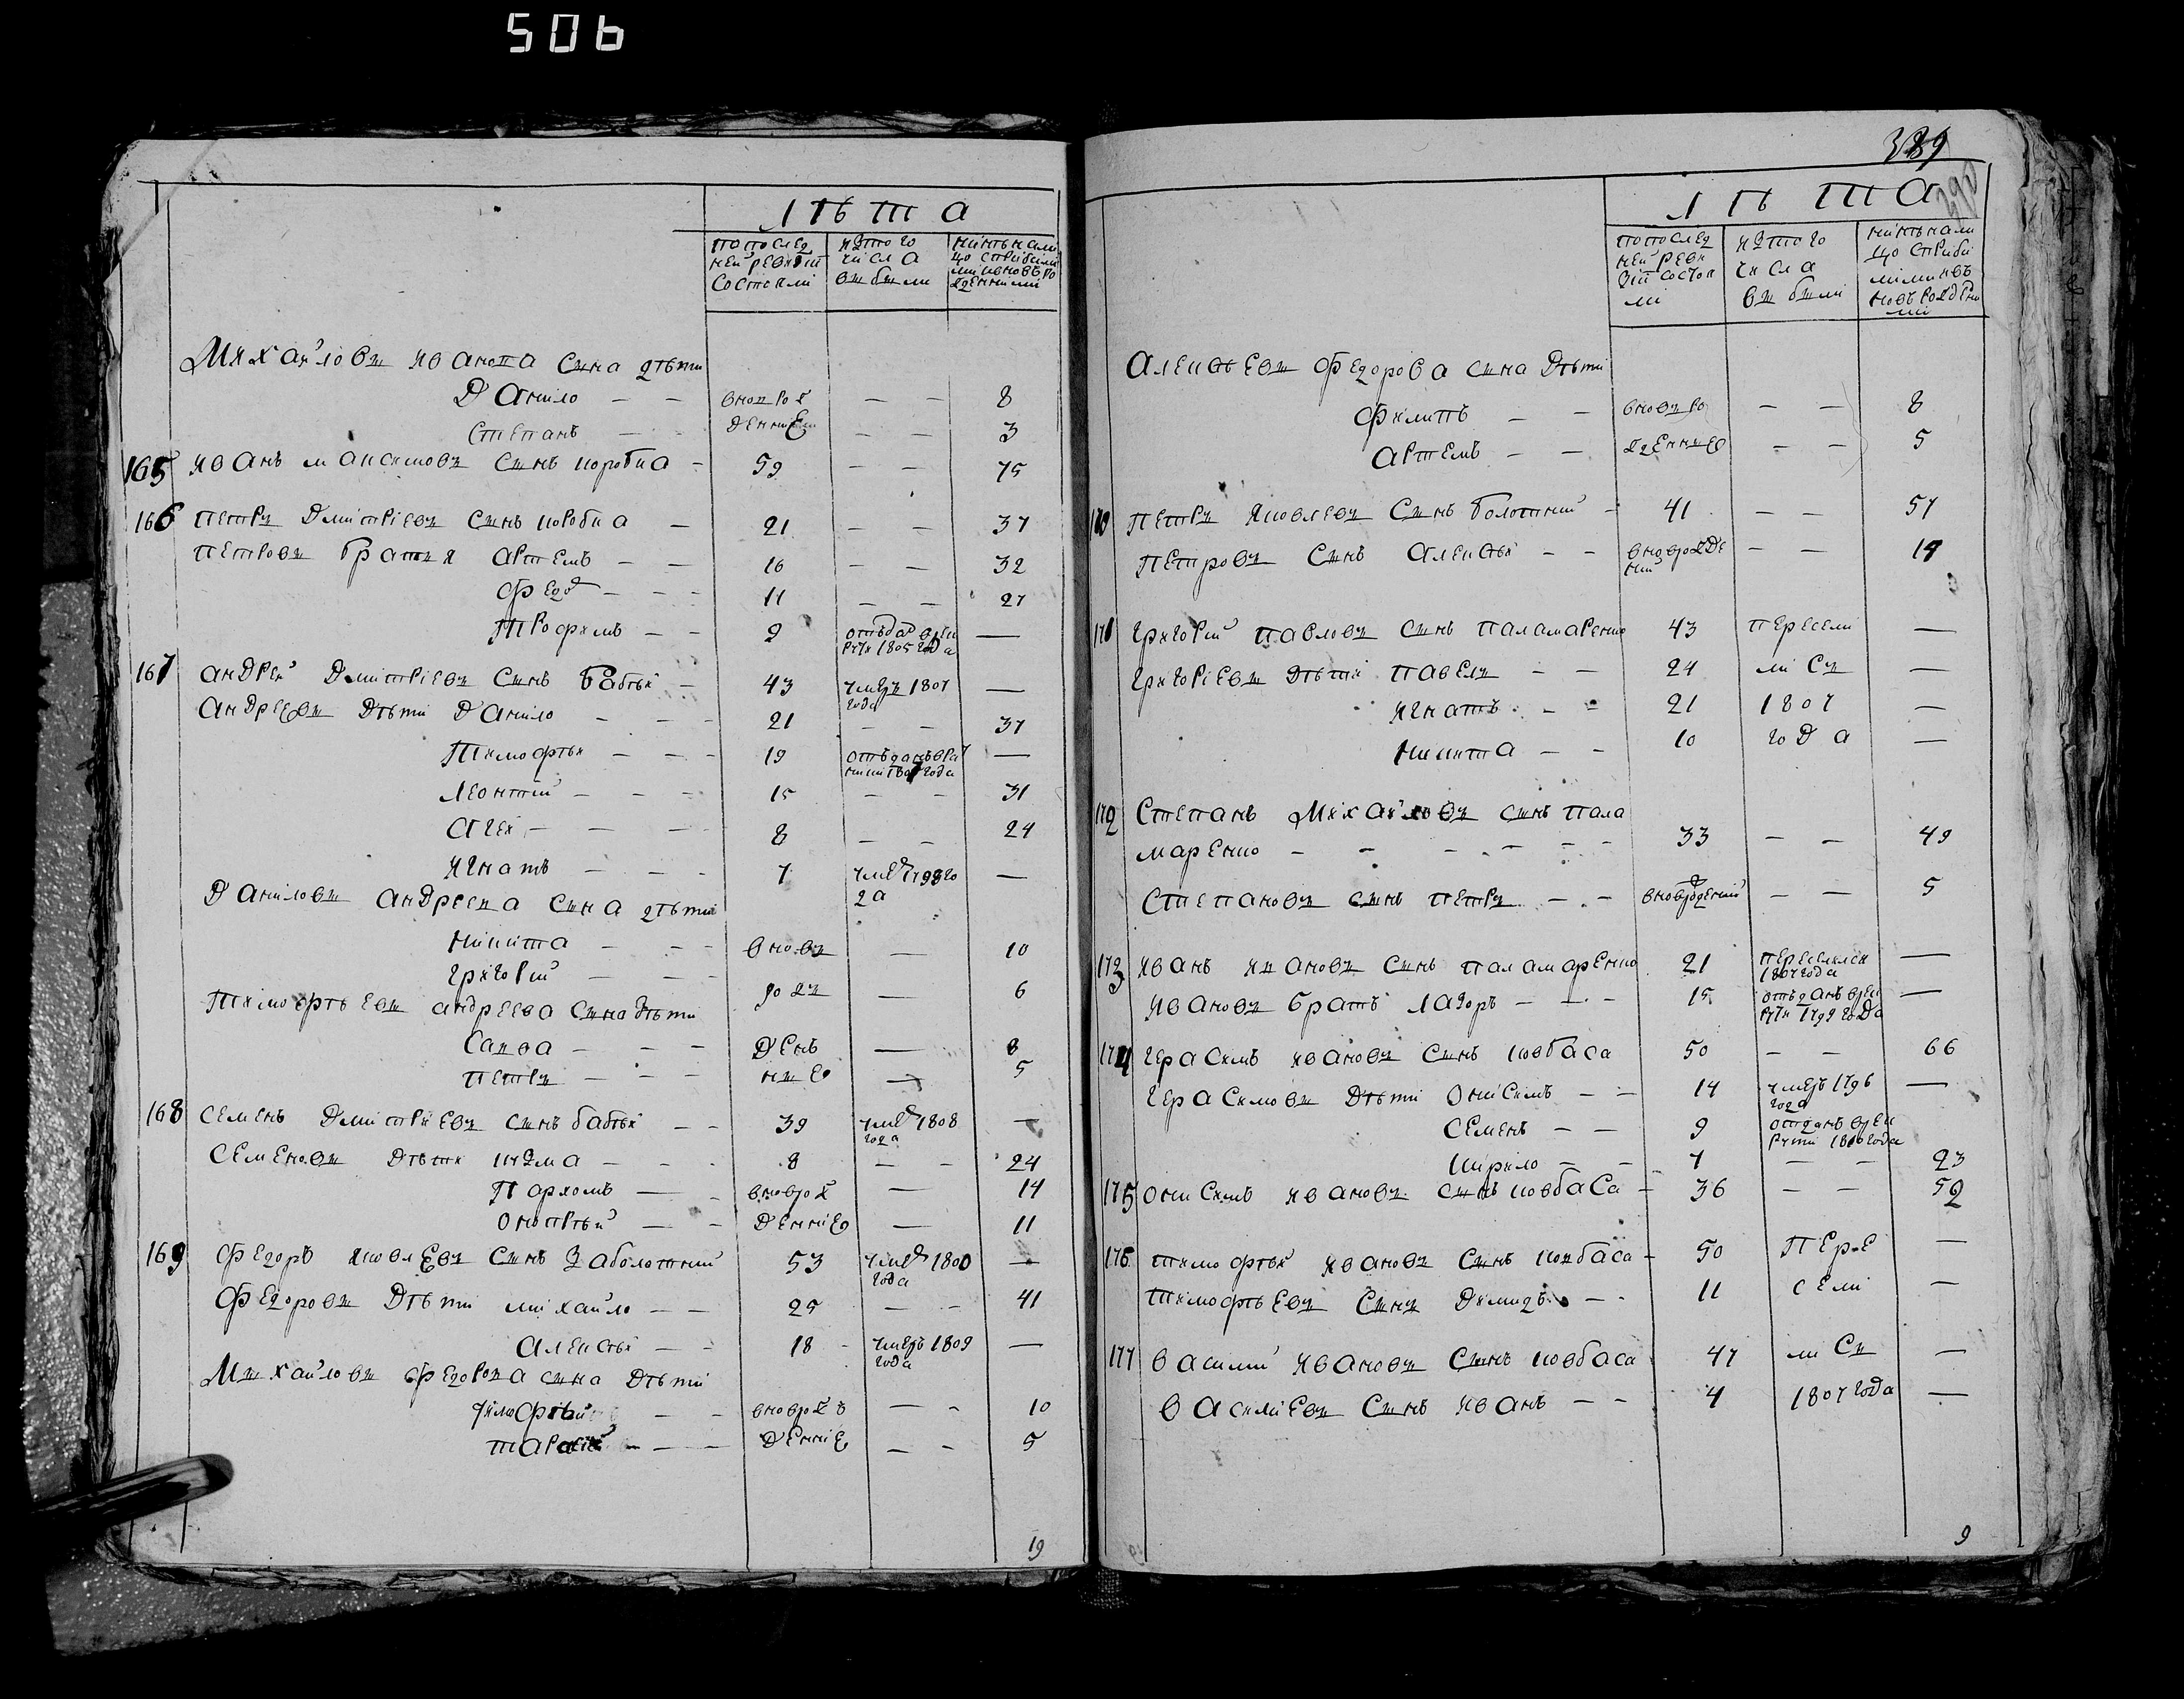 506
Лѣта
по послед
ней ревизіи
состояли
изтого
числа
выбыли
нинѣ нали
цо страбили
мы и новъ ро
жденними
Михайловы иванова сина дѣти
Данило — — вновь рож — — 8
Степанъ — — денние — — 3
165 иванъ максимовъ синъ коробка — 59 — — 75
166 петръ дмитріевъ синъ коробка — 21 — — 37
петровы братия артемъ — — 16 — — 32
федор — — — 11 — — 27
трофимъ — — 9 отъдан врек —
рути 1805 года
167 андрей дмитріевъ синъ бабѣй — 43 умеръ 1807 —
года
андреевы дѣти данило — — — 21 — — 37
тимофѣй — — — 19 отъданъ врек —
леонтий — — — 15 — — 31
сргей — — — 8 — — 24
игнатъ — — — 7 умер 1798 го —
да
Даниловы андреева сина дѣти
никита — — — вновъ — 10
григорий — — — рож — 6
тимофѣевы андреева сина дѣти
савва — — — денъ — 8
петръ — — — ние — 5
168 семенъ дмитриевъ синъ бабѣй — — 39 умер 1808 —
года
семеновы дѣти кузма — — — 8 — — 24
пархомъ — — вноврож — 14
онопрѣй — — денніе — 11
169 федоръ яковлевъ синъ заболотний 53 умер 1800 —
года
федоровы дѣти михайло — — 25 — — 41
алексѣй — — 18 — умеръ 1809 —
года
Михайловы федорова сина дѣти
тимофѣй — — вноврож — — 10
— — — денніе — — 5
19
389
Лѣта
по послед
ней реви
зіи состоя
ли
изтого
числа
выбыли
нинѣ нали
цо страби
ми и новъ
новъ рожденно
ми
Алексѣевы федорова сина дѣти
филипъ — — вновъ ро — — 8
артемъ — — жденние — — 5
170 петръ яковлевъ синъ болотний — 41 — — 57
петровъ синъ алексѣй — — вноврожде — — 14
ний
171 григорий павловъ синъ паламаренко 43 пересели —
григоріевы дѣти павелъ — — 24 лися —
игнатъ — — 21 1807 —
никита — — 10 года —
172 степанъ Михайловъ синъ пала
маренко — — — — — — 33 — — 49
степановъ синъ петръ — — вноврожденний — — 5
173 иванъ ивановъ синъ паламаренко 21 переселился —
1807 года
ивановъ братъ лазоръ — — 15 отъданъ врек —
рути 1799 года
174 герасимъ ивановъ синъ ковбаса 50 — — 66
герасимовы дѣти онисимъ — — 14 умеръ 1796 —
года
семенъ — — 9 отданъ врек —
кирило — — 7 — — 23
175 онисимъ ивановъ синъ ковбаса — 36 — — 52
176 тимофѣй ивановъ синъ ковбаса — 50 пере —
тимофѣевъ синъ димидъ — — 11 сели —
177 василий ивановъ синъ ковбаса 47 лися —
василиевъ синъ иванъ — — 4 1807 года —
9